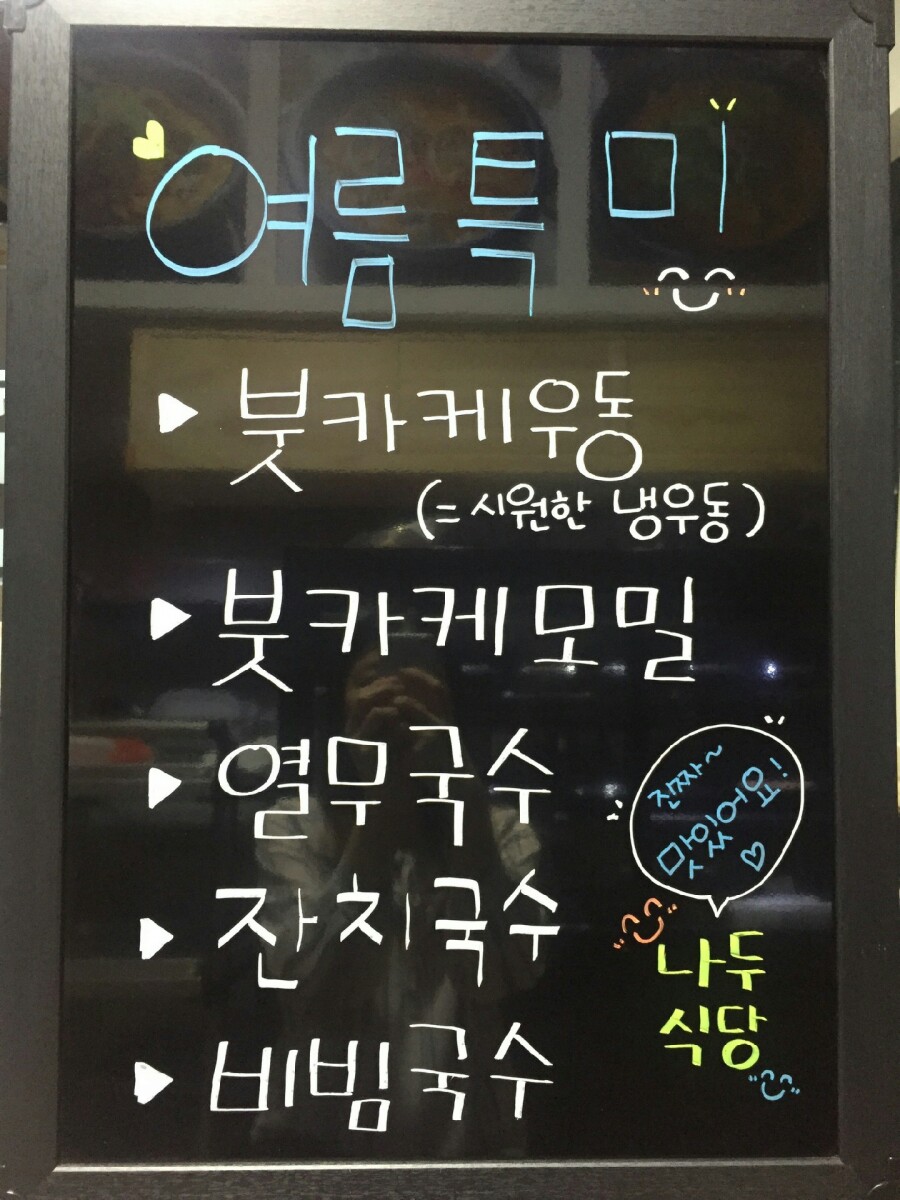 여름특미
▶ 붓카케우동
(= 시원한 냉우동)
▶ 붓카케모밀
▶ 열무국수
▶ 잔치국수
▶ 비빔국수
진짜~
맛있어요!
나두
식당